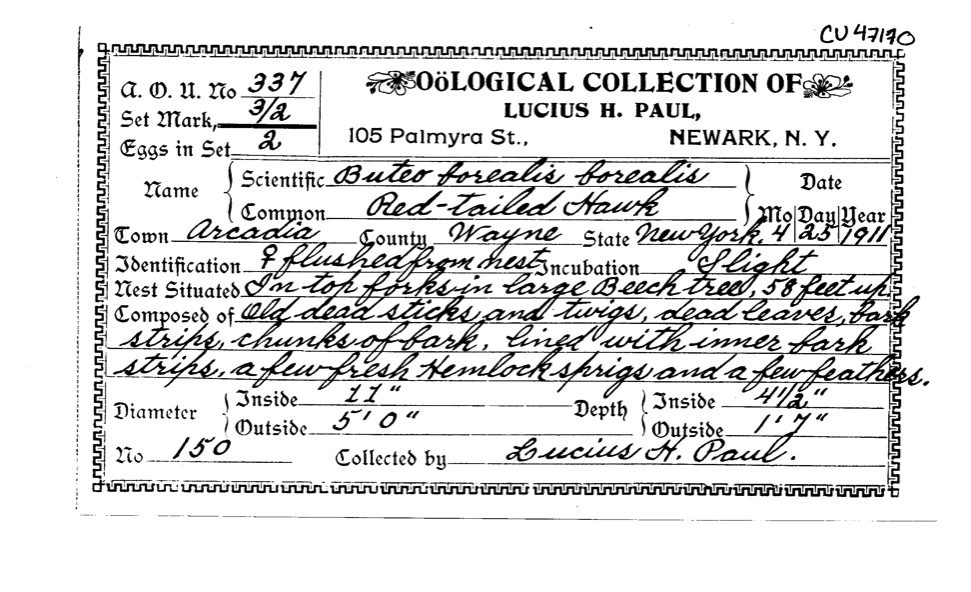 CU 47170
A. O. U. No 337
Set Mark, 3/2
Eggs in Set 2
OöLOGICAL COLLECTION OF
LUCIUS H. PAUL,
105 Palmyra St., NEWARK, N. Y.
Name Scientific Buteo borealis borealis
Common Red-tailed Hawk
Date
Mo Day Year
Town Arcadia County Wayne State New York. 4 25 1911
Identification ♀ flushed from nest Incubation Slight
Nest Situated In top forks in large Beech tree, 58 feet up
Composed of Old dead sticks and twigs, dead leaves, bark
strips, chunks of bark, lined with inner bark
strips, a few fresh Hemlock sprigs and a few feathers.
Diameter Inside 11" Depth Inside 4 1/2"
Outside 5' 0" Outside 1' 7"
No 150 Collected by Lucius H. Paul.